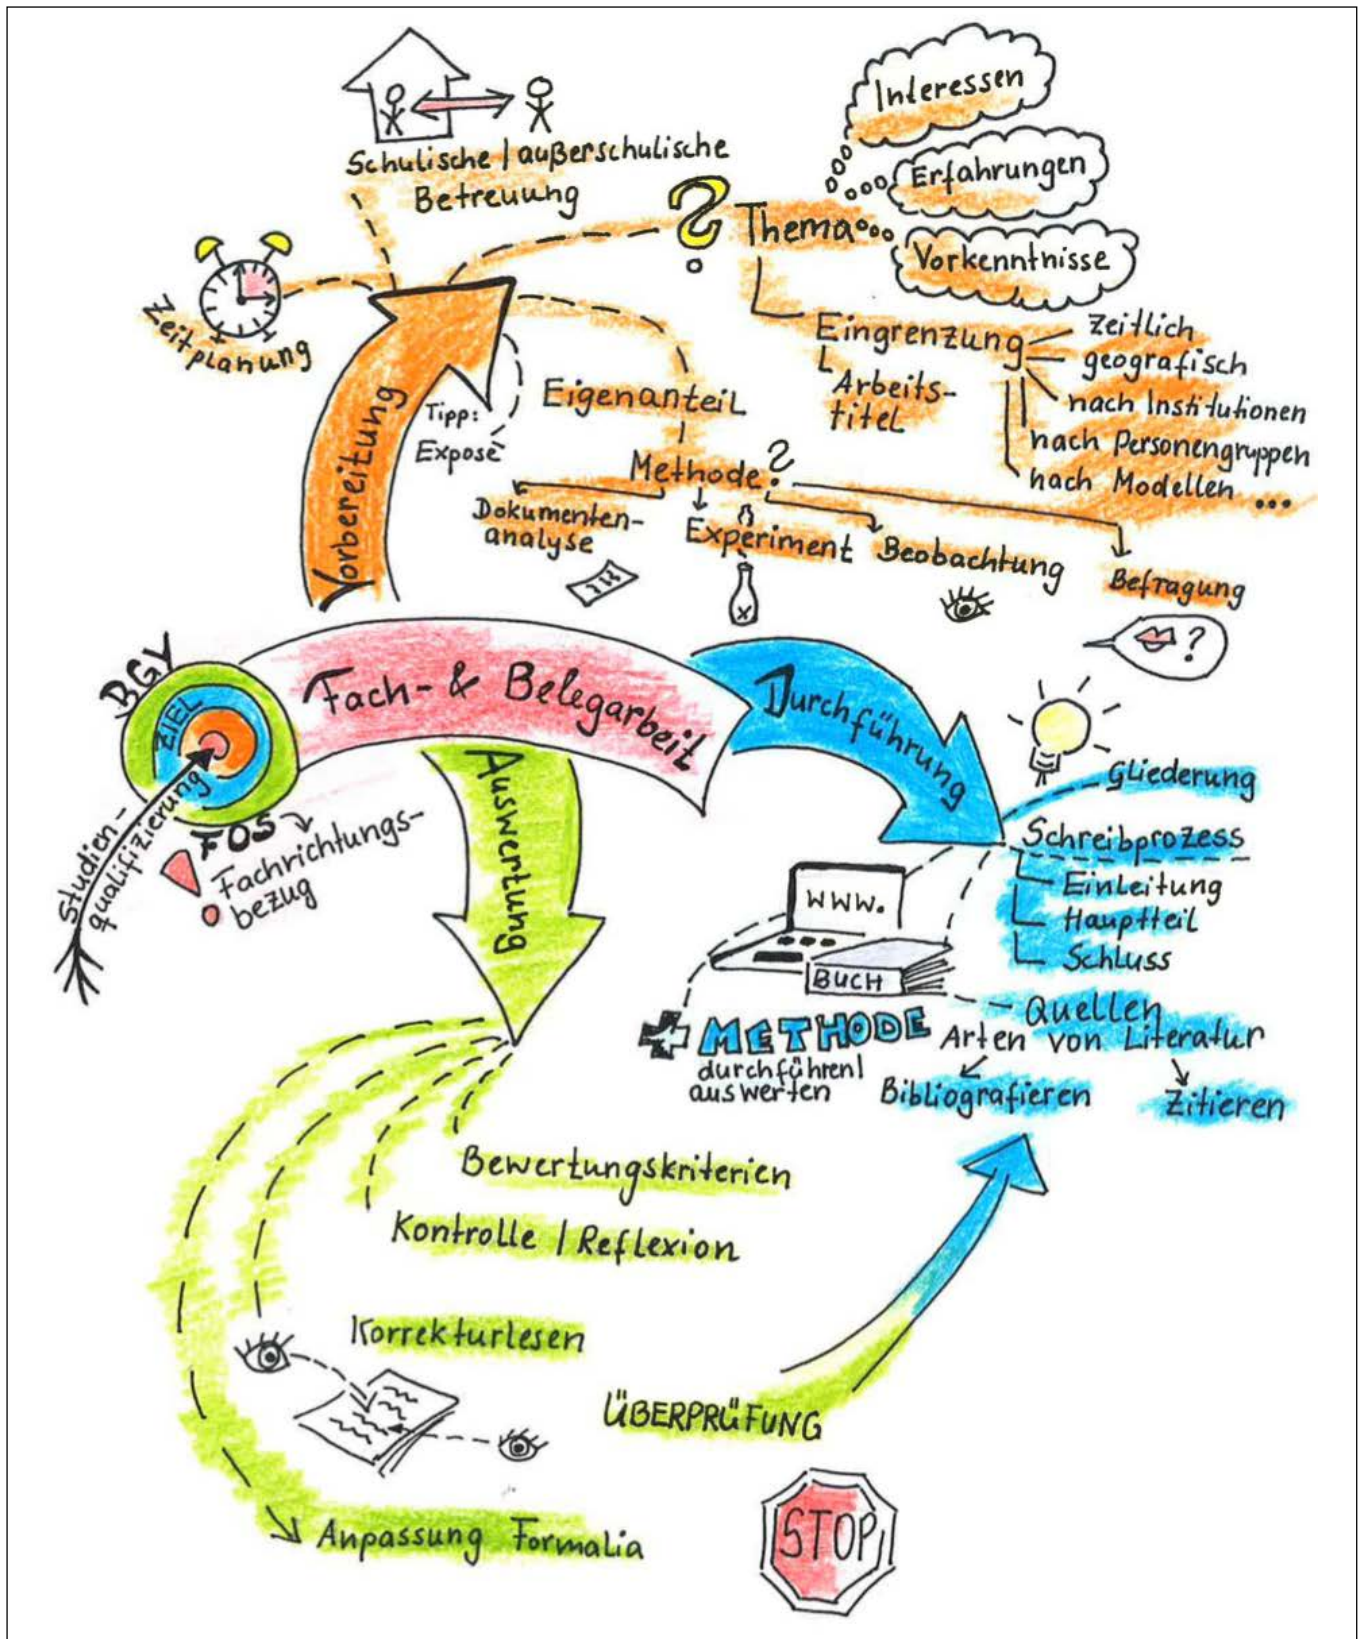 Schulische / außerschulische
Betreuung
Interessen
Erfahrungen
Vorkenntnisse
? Thema
Zeitplanung
Vorbereitung
Tipp:
Exposé
Eingrenzung
Arbeits-
titel
zeitlich
geografisch
nach Institutionen
nach Personengruppen
nach Modellen ...
Eigenanteil
Methode?
Dokumenten-
analyse
Experiment
Beobachtung
Befragung
?
BGY
ZIEL
Studien-
qualifizierung
FOS
! Fachrichtungs-
bezug
Fach- & Belegarbeit
Durchführung
Gliederung
Schreibprozess
Einleitung
Hauptteil
Schluss
www.
BUCH
Quellen
Arten von Literatur
Bibliografieren
Zitieren
+ METHODE
durchführen/
auswerten
Auswertung
Bewertungskriterien
Kontrolle / Reflexion
Korrekturlesen
ÜBERPRÜFUNG
Anpassung Formalia
STOP